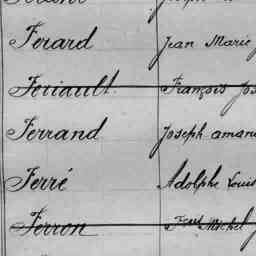 Ferard Jean Marie
Feriault François Jos
Ferrand Joseph aman
Ferré Adolphe Louis
Ferron Michel